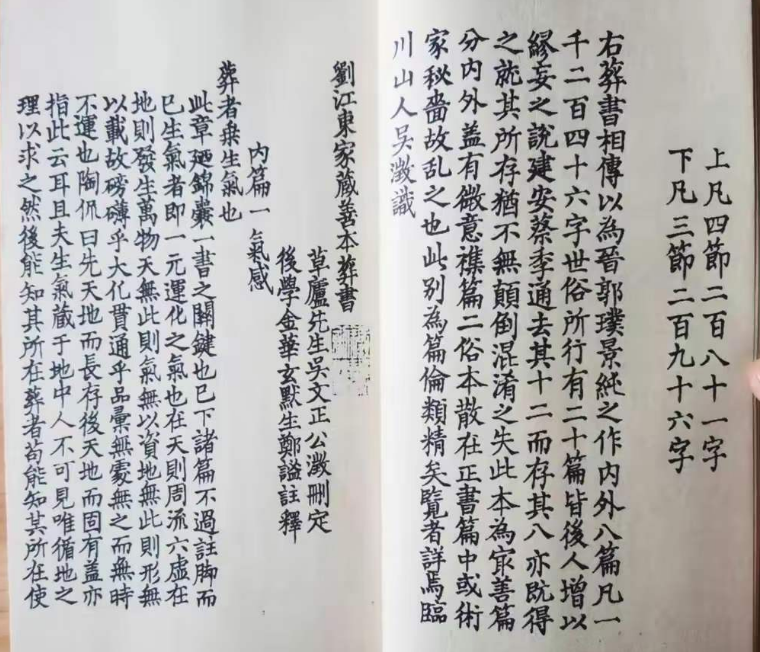 上凡四節二百八十一字
下凡三節二百九十六字
右葬書相傳以為晉郭璞景純之作內外八篇凡一
千二百四十六字世俗所行有二十篇皆後人增以
繆妄之說建安蔡季通去其十二而存其八亦既得
之就其所存猶不無顛倒混淆之失此本為㝡善篇
分內外盖有微意襍篇二俗本散在正書篇中或術
家秘嗇故乱之也此別為篇倫類精矣覽者詳焉臨
川山人吳澂識
劉江東家藏善本葬書
草廬先生吳文正公澂刪定
後學金華玄默生鄭謐註釋
內篇一 氣感
葬者乗生氣也
此章廼錦囊一書之關鍵也已下諸篇不過註脚而
已生氣者即一元運化之氣也在天則周流六虛在
地則發生萬物天無此則氣無以資地無此則形無
以載故磅礴乎大化貫通乎品彙無處無之而無時
不運也陶侃曰先天地而長存後天地而固有盖亦
指此云耳且夫生氣藏于地中人不可見唯循地之
理以求之然後能知其所在葬者苟能知其所在使